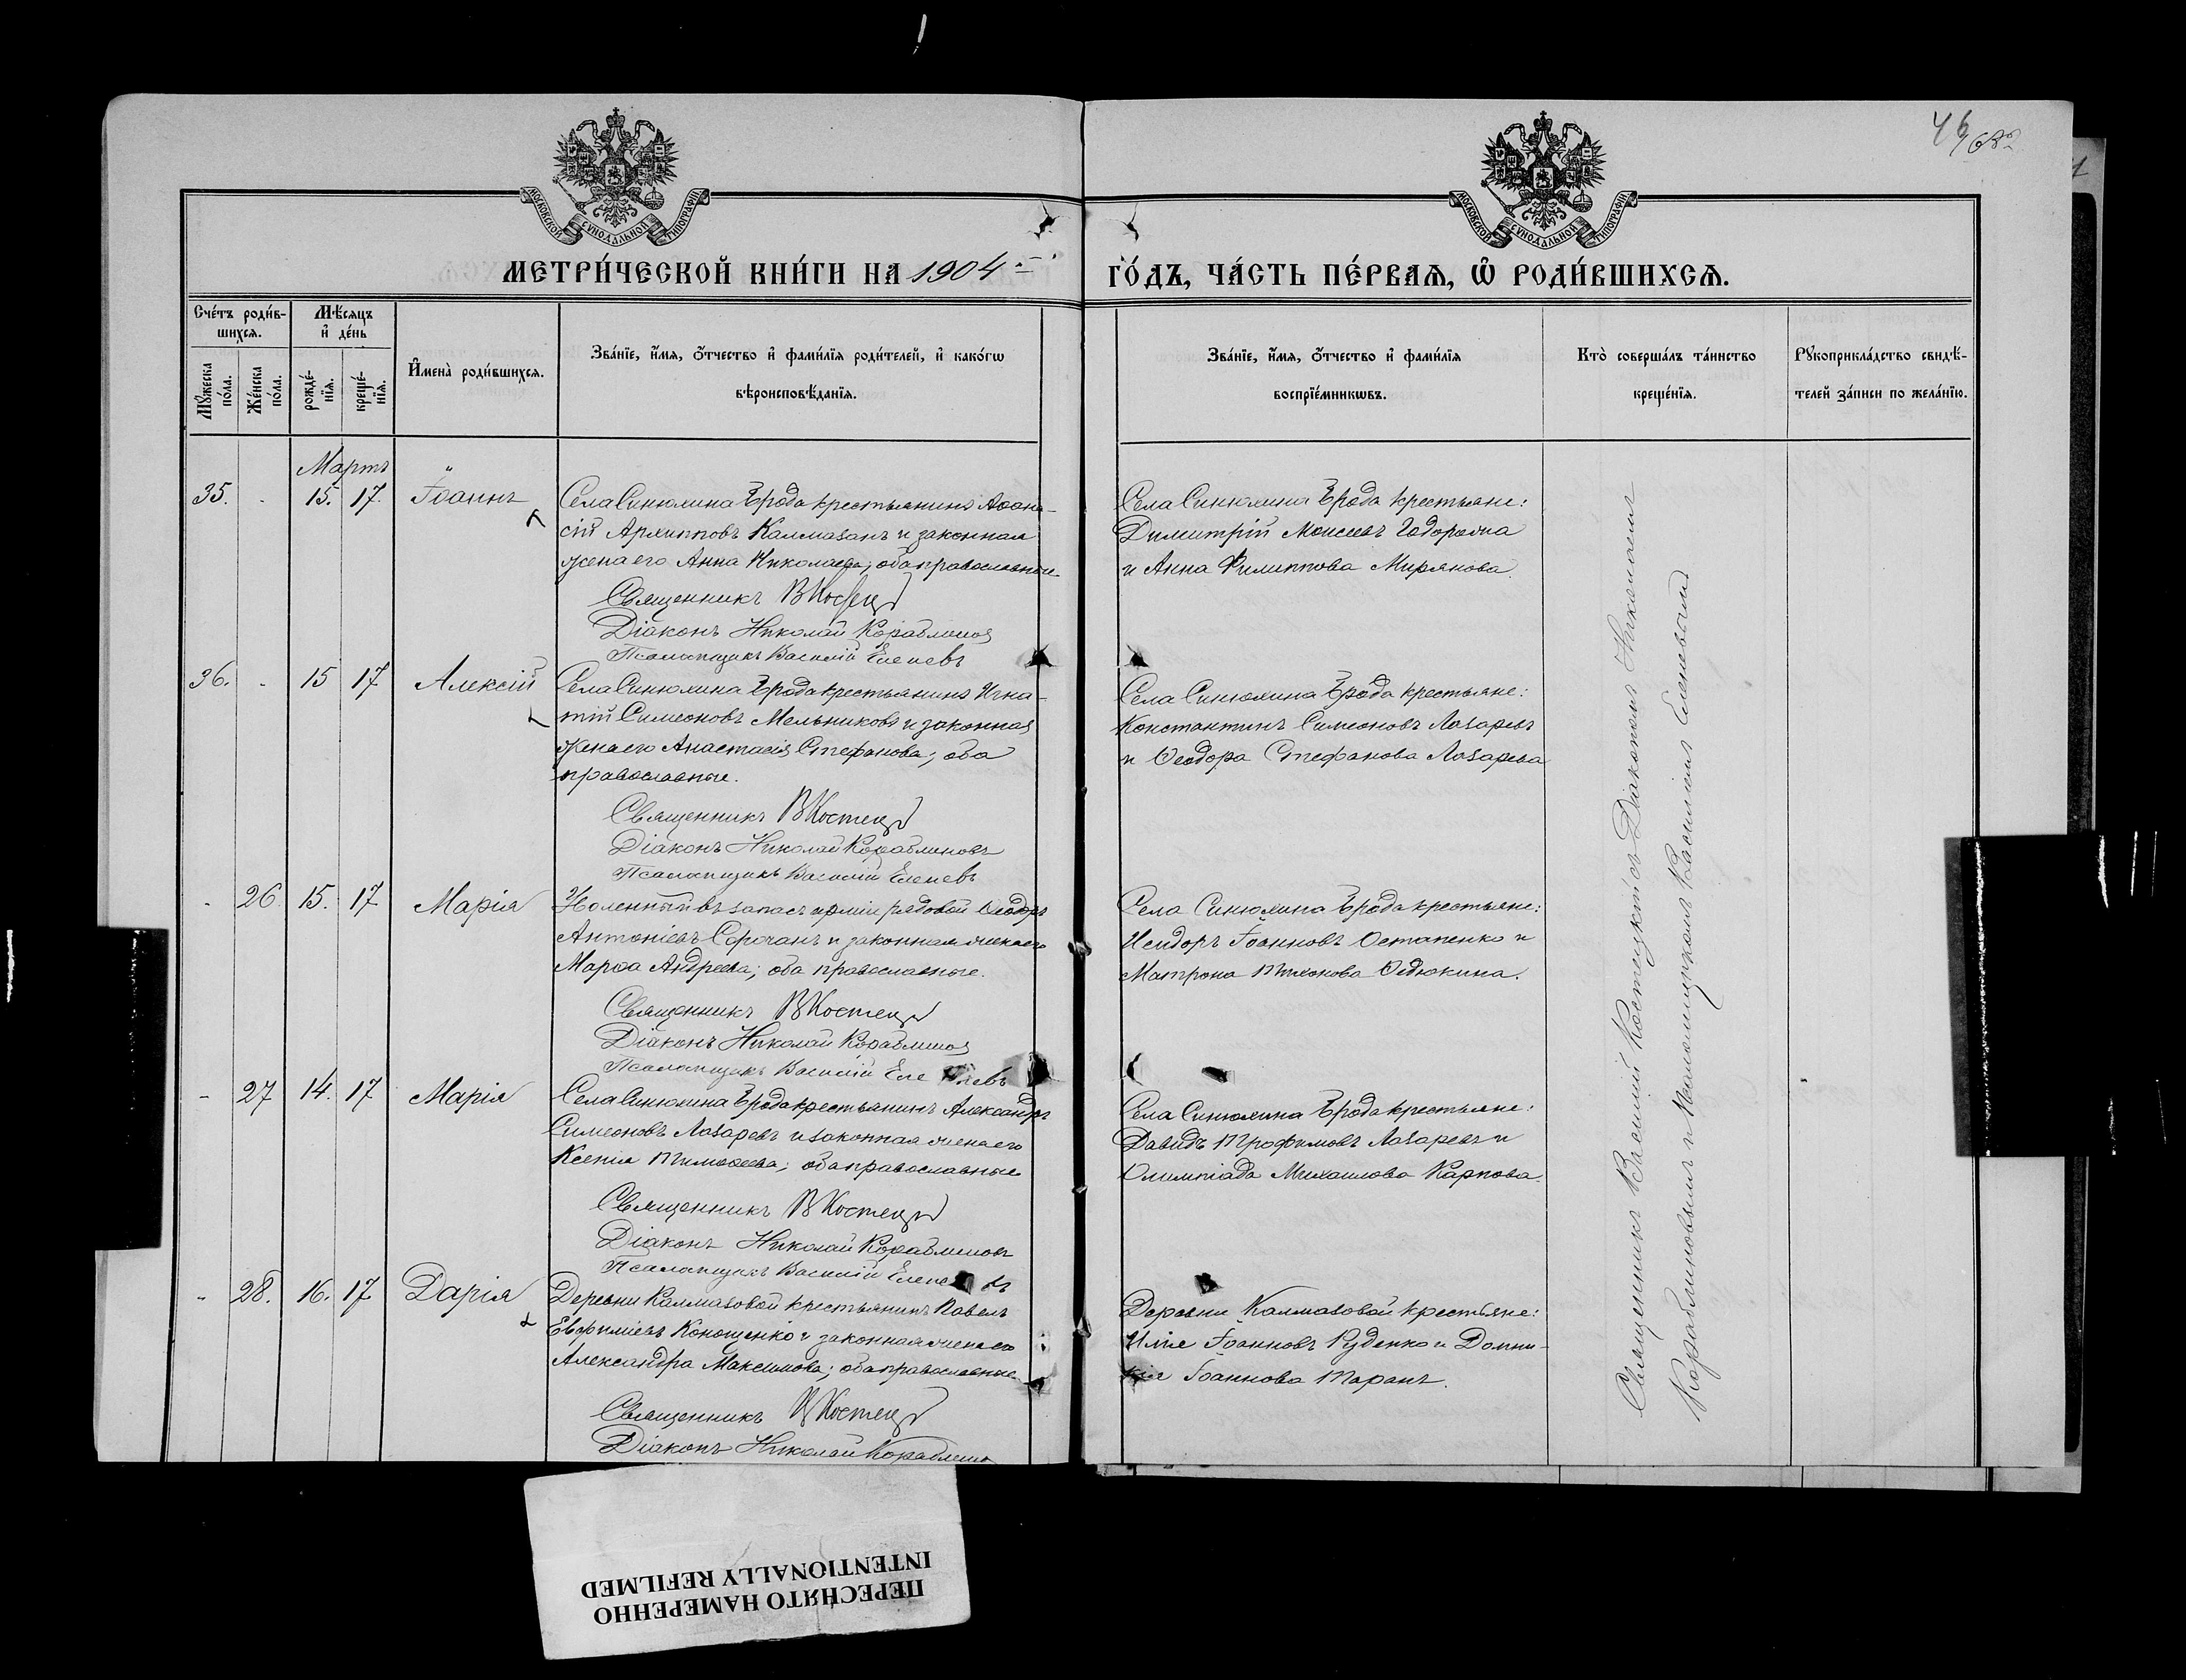 46
МОСКОВСКОЙ СУНОДАЛЬНОЙ ТИПОГРАФІИ
МОСКОВСКОЙ СУНОДАЛЬНОЙ ТИПОГРАФІИ
МЕТРИ́ЧЕСКОЙ КНИ́ГИ НА 1904
ГО́ДЪ, ЧА́СТЬ ПЕ́РВАѦ, Ѿ РОДИ́ВШИХСѦ.
Сче́тъ роди́в-
шихсѧ.
Мѣ́сѧцъ
и҆ де́нь
Мꙋ́жеска
по́ла.
Же́нска
по́ла.
рожде́-
нїѧ.
креще́-
нїѧ.
И҆мена̀ роди́вшихсѧ.
Зва́нїе, и҆́мѧ, ѻ҆́тчество и҆ фами́лїѧ роди́телей, и҆ како́гѡ
вѣроисповѣ́данїѧ.
Зва́нїе, и҆́мѧ, ѻ҆́тчество и҆ фами́лїѧ
воспрїе́мникѡвъ.
Кто̀ соверша́лъ та́инство
креще́нїѧ.
Рꙋкоприкла́дство свидѣ́-
телей за́писи по жела́нїю.
Мартъ "
35. - 15. 17. Іоаннъ
Села Синюхина Брода крестьянинъ Аѳана-
сій Архипповъ Калмазанъ и законная
жена его Анна Николаева; оба православные
Священникъ В Костецк
Діаконъ Николай Кораблиновъ
Псаломщикъ Василій Еленевъ
Села Синюхина Брода крестьяне:
Димитрій Моисеевъ
и Анна Филиппова Мирянова.
36. - 15 17 Алексій
Села Синюхина Брода крестьянинъ Игна-
тій Симеоновъ Мельниковъ и законная
жена его Анастасія Стефанова; оба
православные.
Священникъ В Костецк
Діаконъ Николай Кораблиновъ
Псаломщикъ Василій Еленевъ
Села Синюхина Брода крестьяне:
Константинъ Симеоновъ Лазаревъ
и Ѳеодора Стефанова Лазарева
- 26 15. 17 Марія
Уволенный въ запасъ арміи рядовой Ѳеодоръ
Антоніевъ Сорочанъ и законная жена его
Марѳа Андреева; оба православные.
Священникъ В Костецк
Діаконъ Николай Кораблиновъ
Псаломщикъ Василій Еленевъ
Села Синюхина Брода крестьяне:
Исидоръ Іоанновъ Остапенко и
Матрона Тихонова Ѳедюкина.
- 27 14. 17 Марія
Села Синюхина Брода крестьянинъ Александръ
Симеоновъ Лазаревъ и законная жена его
Ксенія Тимоѳеева; оба православные
Священникъ В Костецк
Діаконъ Николай Кораблиновъ
Псаломщикъ Василій Еленевъ
Села Синюхина Брода крестьяне:
Давидъ Трофимовъ Лазаревъ и
Олимпіада Михаилова Карпова.
- 28. 16. 17 Дарія
Деревни Калмазовой крестьянинъ Павелъ
Евфиміевъ Конощенко и законная жена его
Александра Максимова; оба православные
Священникъ В Костецк
Діаконъ Николай Кораблино
Деревни Калмазовой крестьяне:
Илія Іоанновъ Руденко и Домни-
кія Іоаннова Таранъ.
Священникъ Василій Костецкій съ Діакономъ Николаемъ
Кораблиновымъ и Псаломщикомъ Василіемъ Еленевымъ
ПЕРЕСНЯТО НАМЕРЕННО
INTENTIONALLY REFILMED